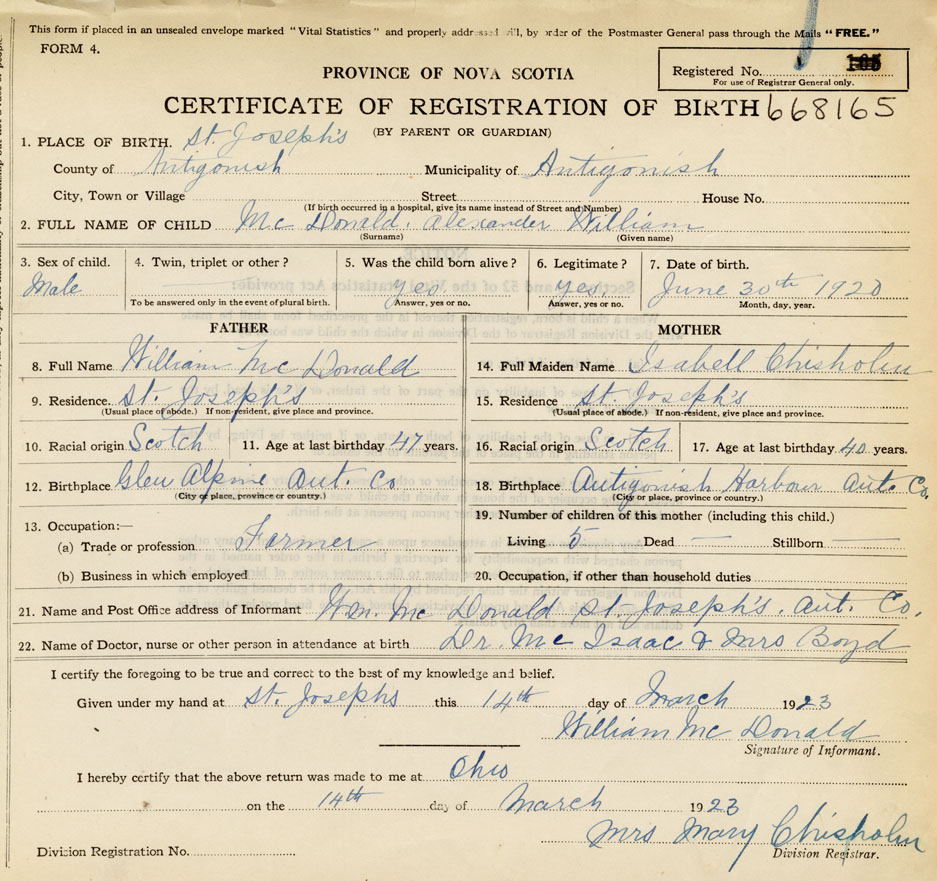 This form if placed in an unsealed envelope marked "Vital Statistics" and properly addressed will, by order of the Postmaster General pass through the Mails "FREE."
FORM 4.
Registered No. 105
For use of Registrar General only.
PROVINCE OF NOVA SCOTIA
CERTIFICATE OF REGISTRATION OF BIRTH 668165
(BY PARENT OR GUARDIAN)
1. PLACE OF BIRTH. St. Joseph's
County of Antigonish Municipality of Antigonish
City, Town or Village Street House No.
(If birth occurred in a hospital, give its name instead of Street and Number)
2. FULL NAME OF CHILD Mc Donald, Alexander William
(Surname) (Given name)
3. Sex of child. 4. Twin, triplet or other? 5. Was the child born alive? 6. Legitimate? 7. Date of birth.
Male Yes. Yes. June 30th 1920
To be answered only in the event of plural birth. Answer, yes or no. Answer, yes or no. Month, day, year.
FATHER MOTHER
8. Full Name William Mc Donald 14. Full Maiden Name Isabell Chisholm
9. Residence. St. Joseph's 15. Residence St. Joseph's
(Usual place of abode.) If non-resident, give place and province. (Usual place of abode.) If non-resident, give place and province.
10. Racial origin Scotch 11. Age at last birthday 47 years. 16. Racial origin Scotch 17. Age at last birthday 40 years.
12. Birthplace Glen Alpine Ant. Co. 18. Birthplace Antigonish Harbour Ant. Co.
(City or place, province or country.) (City or place, province or country.)
13. Occupation:— 19. Number of children of this mother (including this child.)
(a) Trade or profession Farmer Living 5 Dead — Stillborn —
(b) Business in which employed 20. Occupation, if other than household duties
21. Name and Post Office address of Informant Wm. Mc Donald St. Joseph's. Ant. Co.
22. Name of Doctor, nurse or other person in attendance at birth Dr. Mc Isaac & Mrs Boyd
I certify the foregoing to be true and correct to the best of my knowledge and belief.
Given under my hand at St. Josephs this 14th day of March 1923
William Mc Donald
Signature of Informant.
I hereby certify that the above return was made to me at Ohio
on the 14th day of March 1923
Mrs Mary Chisholm
Division Registration No. Division Registrar.